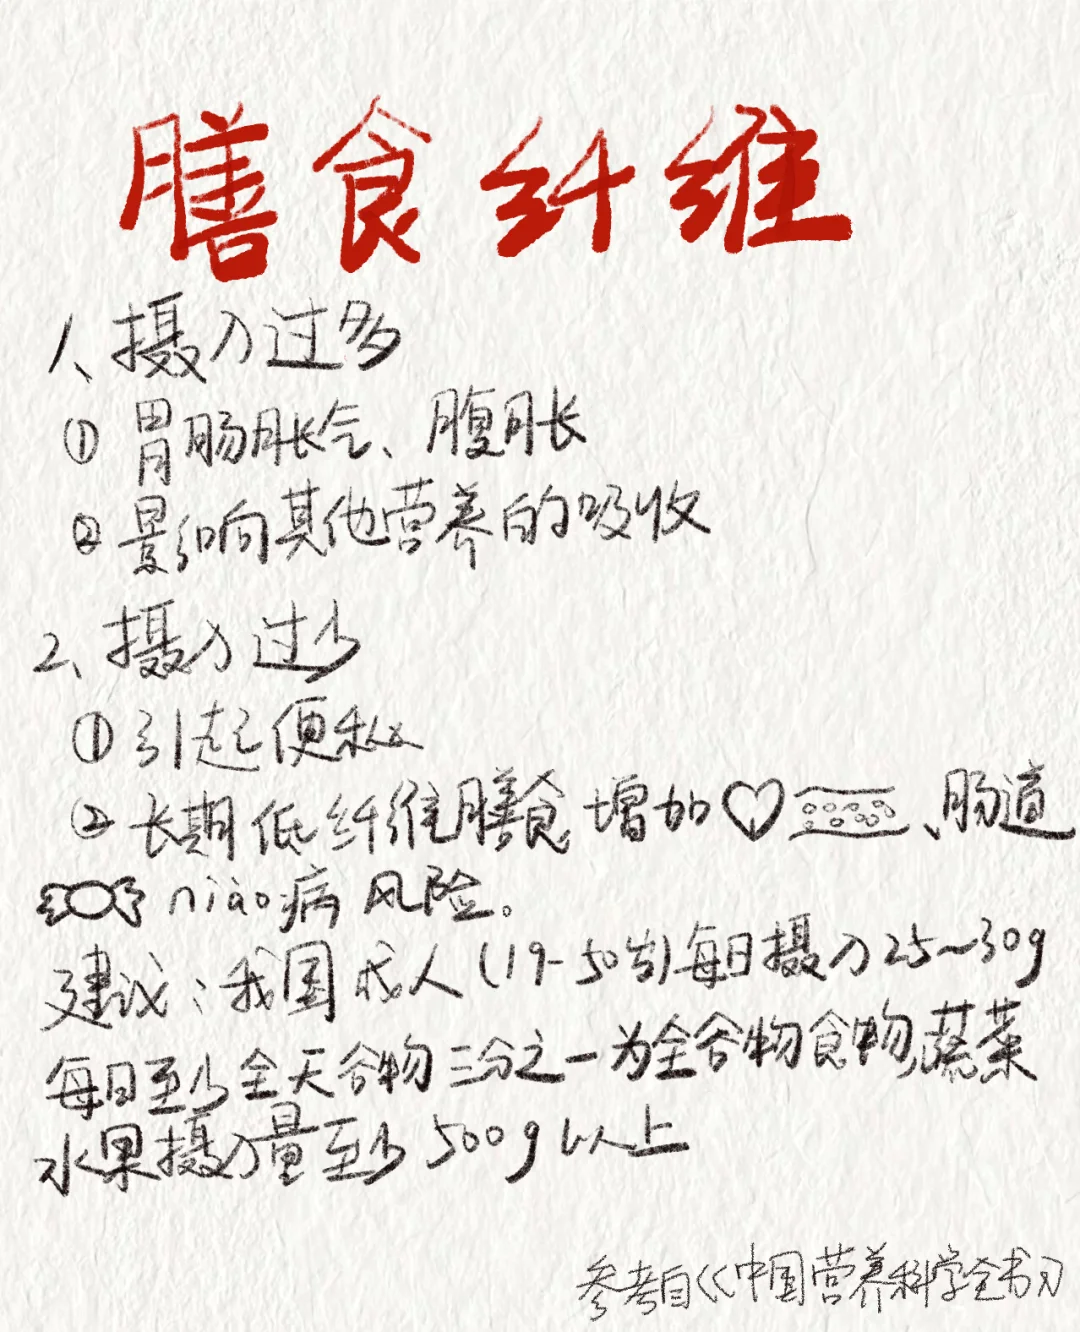 膳食纤维
1、摄入过多
① 胃肠胀气、腹胀
② 影响其他营养的吸收
2、摄入过少
① 引起便秘
② 长期低纤维膳食增加、肠道
niào病风险。
建议：我国成人(19-50岁)每日摄入25~30g
每日至少全天谷物三分之一为全谷物食物,蔬菜
水果摄入量至少500g以上
参考自《中国营养科学全书》